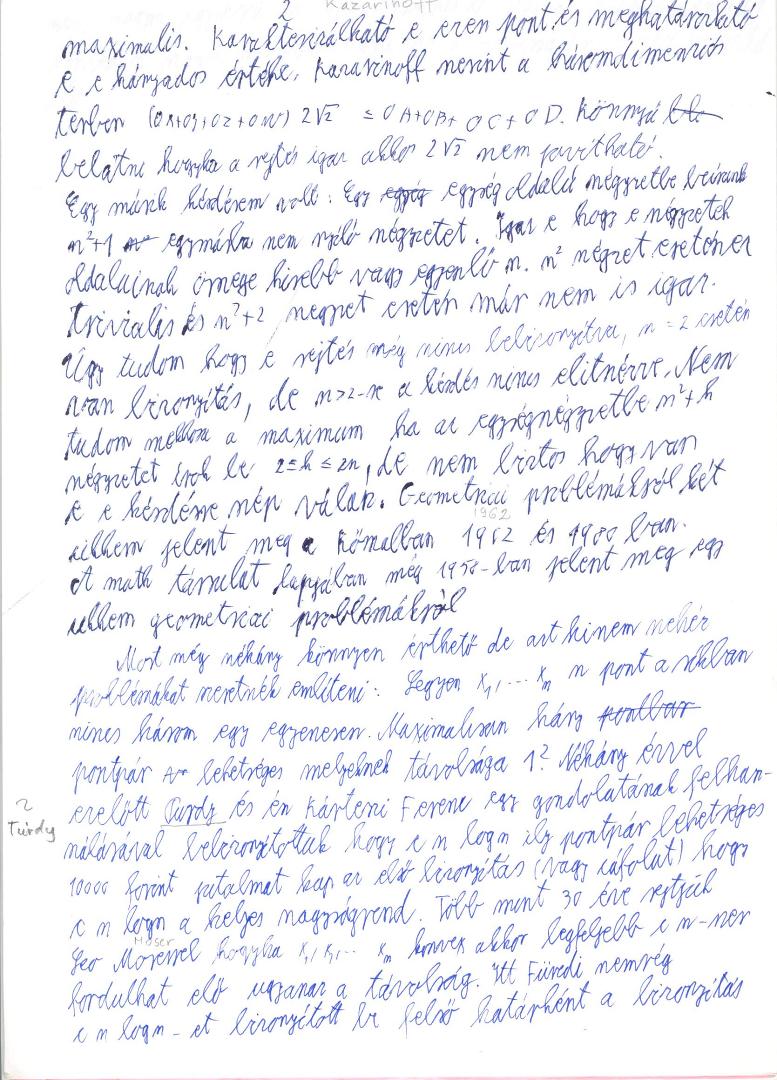 2
Kazarinoff
maximalis. Karakterizálható e ezen pont és meghatározható
e e hányados értéke. Kazarinoff szerint a háromdimenziós
térben (OX+OY+OZ+OW) 2√2 ≤ OA+OB+OC+OD. Könnyű
belátni hogyha a sejtés igaz akkor 2√2 nem javítható.
Egy másik kérdésem volt: Egy egység oldalú négyzetbe beírunk
n²+1 egymásba nem nyúló négyzetet. Igaz e hogy e négyzetek
oldalainak összege kisebb vagy egyenlő n. n² négyzet esetén ez
triviális és n²+2 négyzet esetén már nem is igaz.
Úgy tudom hogy e sejtés még nincs bebizonyítva, n = 2 esetén
van bizonyítás, de n>2-re a kérdés nincs elintézve. Nem
tudom mekkora a maximum ha az egységnégyzetbe n²+k
négyzetet írok be 2≤k≤2n, de nem biztos hogy van
e e kérdésre szép válasz. Geometriai problémákról két
1962
cikkem jelent meg a Kömalban 1962 és 1980 ban.
A math társulat lapjában még 1950-ban jelent meg egy
cikkem geometriai problémákról
Most még néhány könnyen érthető de azt hiszem nehéz
problémákat szeretnék említeni: Legyen x₁, ... xₙ n pont a síkban
nincs három egy egyenesen. Maximalisan hány pontbar
pontpár lehetséges melyeknek távolsága 1? Néhány évvel
ezelőtt Purdy és én Kárteszi Ferenc egy gondolatának felhasz-
2
Turdy
nálásával bebizonyítottuk hogy c n log n ily pontpár lehetséges
10000 forint jutalmat kap az első bizonyítás (vagy cáfolat) hogy
c n log n a helyes nagyságrend. Több mint 30 éve sejtjük
Moser
Leo Moserrel hogyha x₁, x₂, ... xₙ konvex akkor legfeljebb c n-szer
fordulhat elő ugyanaz a távolság. Itt Füredi nemrég
c n log n - et bizonyított be felső határként a bizonyítás